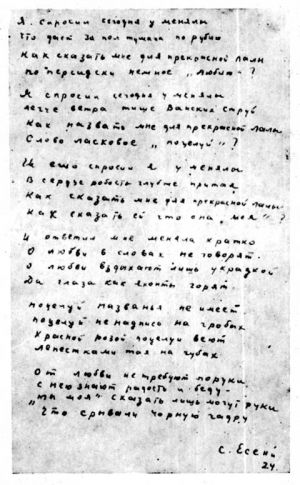 Я спросил сегодня у менялы
Что дает за пол тумана по рублю
Как сказать мне для прекрасной Лалы
по персидски нежное „люблю"?
Я спросил сегодня у менялы
легче ветра тише Ванских струй
Как назвать мне для прекрасной Лалы
Слово ласковое „поцелуй"?
И еще спросил я у менялы
В сердце робость глубже притая
Как сказать мне для прекрасной Лалы
Как сказать ей что она „моя"?
И ответил мне меняла кратко
О любви в словах не говорят.
О любви вздыхают лишь украдкой
Да глаза как яхонты горят
поцелуй названья не имеет
поцелуй не надпись на гробах
Красной розой поцелуи веют
лепестками тая на губах
От любви не требуют поруки
С нею знают радость и беду.
„ты моя" сказать лишь могут руки
Что срывали чорную чадру
С. Есенин
24.